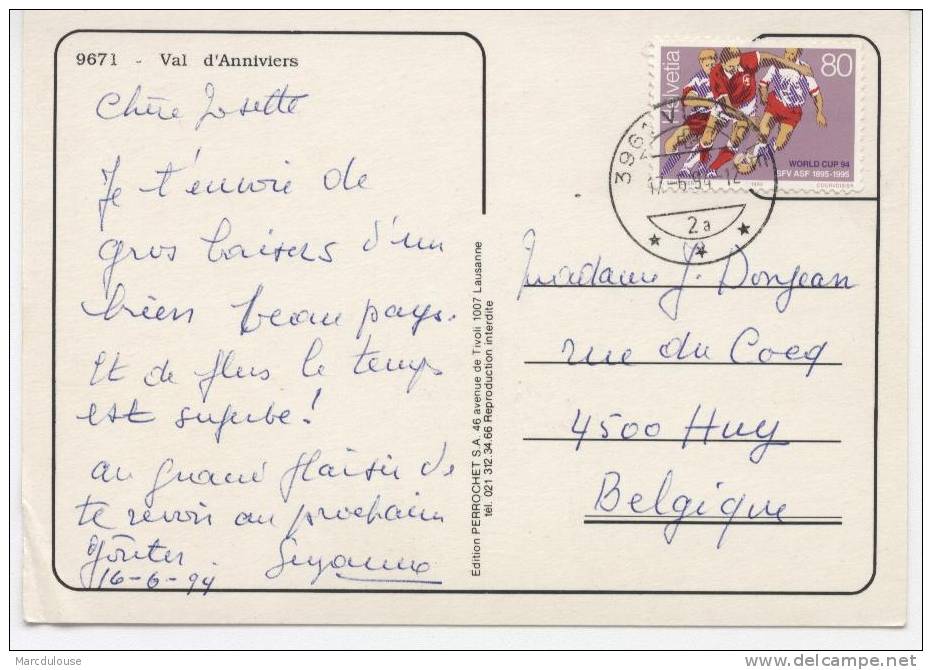 9671 - Val d'Anniviers
Chère Josette
Je t'envoie de
gros baisers d'un
bien beau pays.
Et de plus le temps
est superbe!
au grand plaisir de
te revoir au prochain
goûter. Suzanne
16-6-94
Edition PERROCHET S.A. 46 avenue de Tivoli 1007 Lausanne
tél. 021 312.34.66 Reproduction interdite
Helvetia
80
WORLD CUP 94
SFV ASF 1895-1995
COURVOISIER
3961
17.-6.94.-12
2a
Madame J. Donjean
rue du Cocq
4500 Huy
Belgique
Marcdulouse
www.delcampe.net